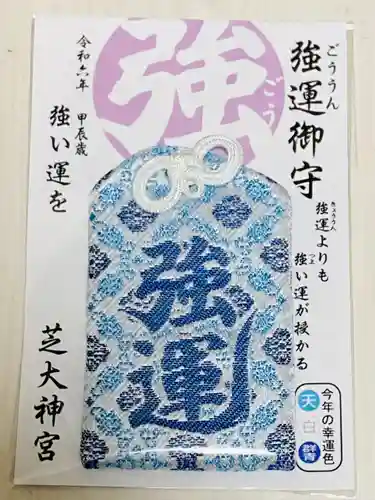 ごううん
強運御守
きょううん
強運よりも
つよ
強い運が授かる
強
ごう
令和六年 甲辰歳
強い運を
芝大神宮
強運
今年の幸運色
天
白
群青